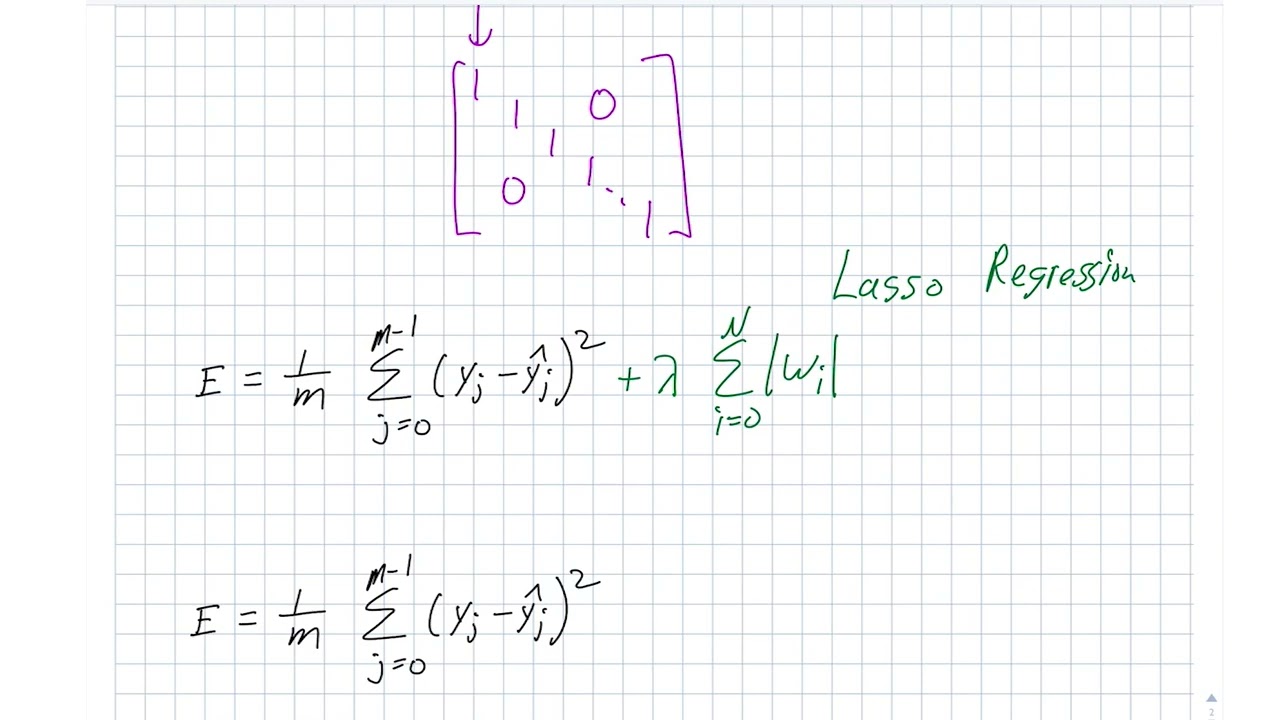 ↓
[1 0
1
1
0 1
⋱ 1]
Lasso Regression
E = 1/m ∑_{j=0}^{m-1} (y_j - ŷ_j)^2 + λ ∑_{i=0}^{N} |w_i|
E = 1/m ∑_{j=0}^{m-1} (y_j - ŷ_j)^2
2